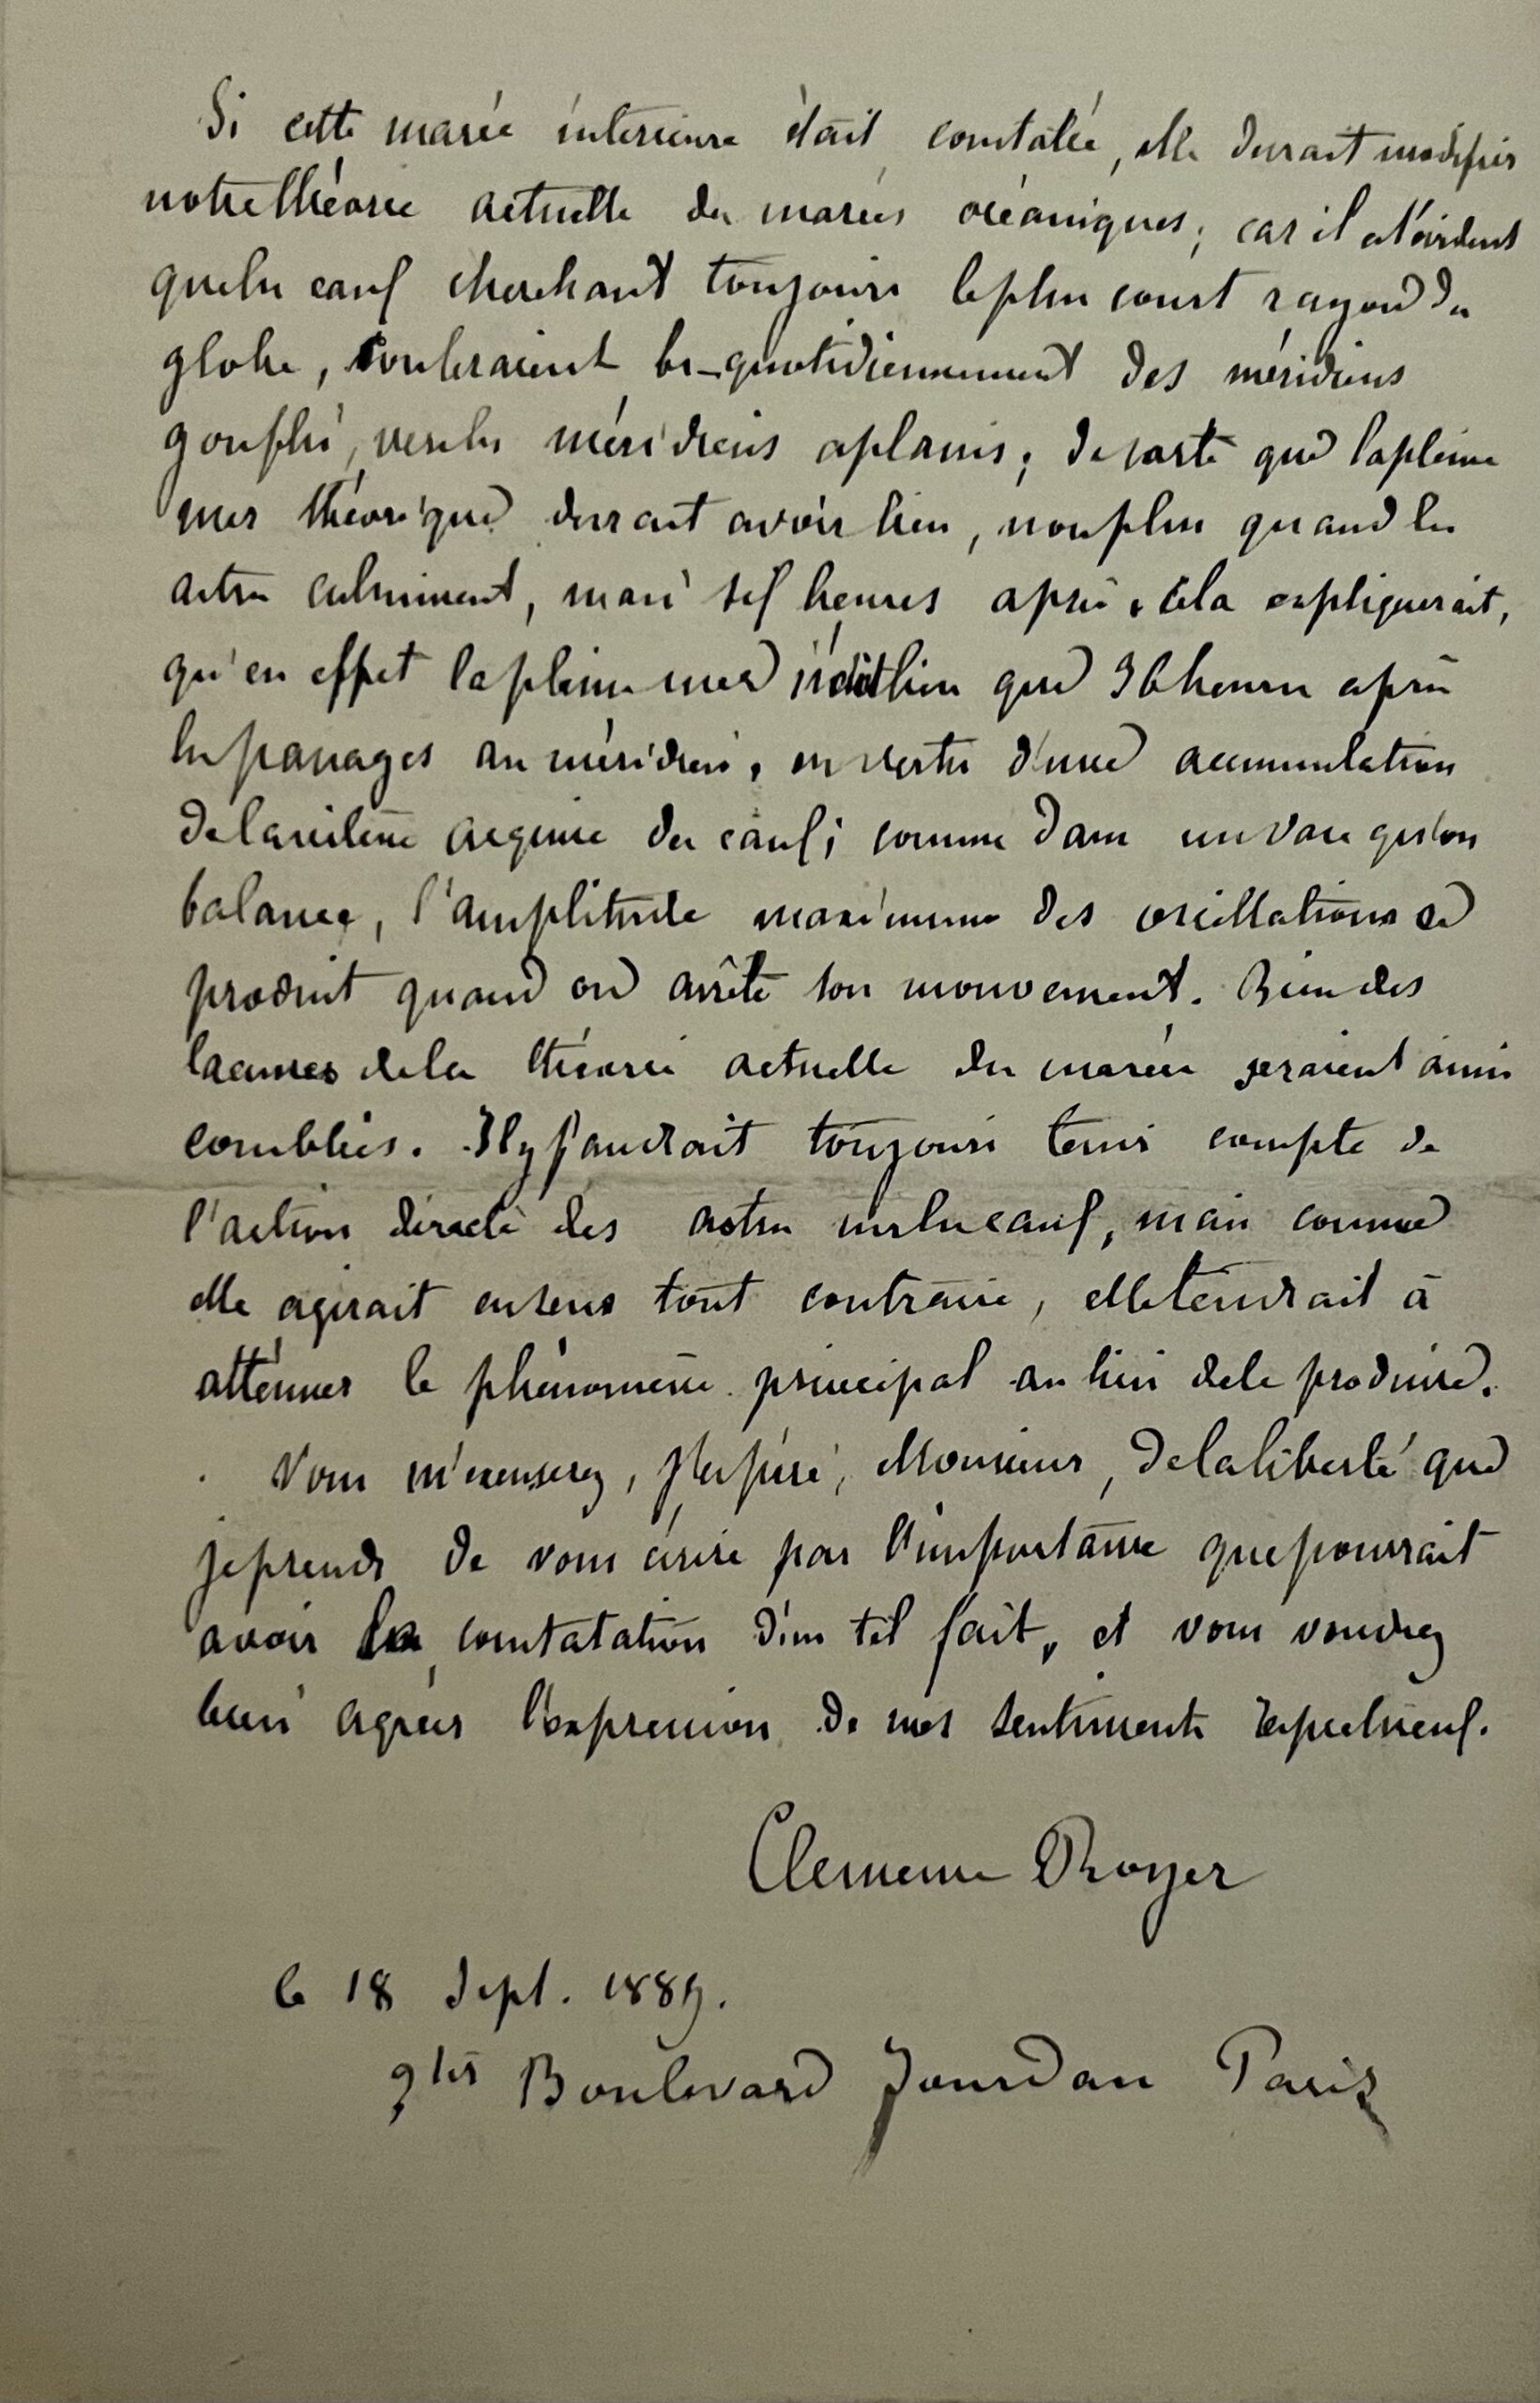 Si cette marée intérieure était constatée, elle devrait modifier
notre théorie actuelle des marées océaniques; car il est évident
que les eaux cherchant toujours le plus court rayon du
globe, rouleraient bi-quotidiennement des méridiens
gonflés, vers les méridiens aplanis; de sorte que la pleine
mer théorique devrait avoir lieu, non plus quand les
astres culminent, mais six heures après. Cela expliquerait,
qu'en effet la pleine mer n'ait lieu que 36 heures après
les passages au méridien, en vertu d'une accumulation
de la vitesse acquise des eaux; comme dans un vase qu'on
balance, l'amplitude maximum des oscillations se
produit quand on arrête son mouvement. Bien des
lacunes de la théorie actuelle des marées seraient ainsi
comblées. Il y faudrait toujours tenir compte de
l'action directe des astres sur les eaux, mais comme
elle agirait en sens tout contraire, elle tendrait à
atténuer le phénomène principal au lieu de le produire.
Vous m'excuserez, j'espère, Monsieur, de la liberté que
je prends de vous écrire par l'importance que pourrait
avoir la constatation d'un tel fait, et vous voudrez
bien agréer l'expression de mes sentiments respectueux.
Clemence Royer
le 18 Sept. 1889.
9 ter Boulevard Jourdan Paris